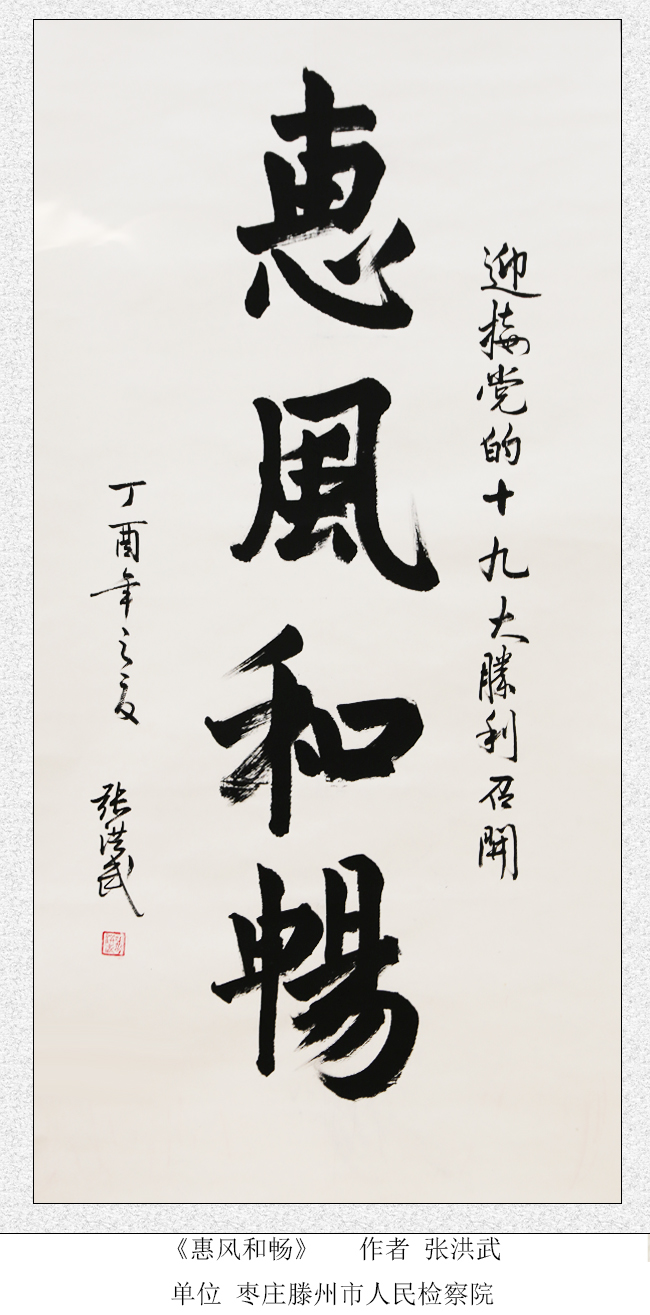 迎接党的十九大勝利召開
惠風和暢
丁酉年之夏
张洪武
《惠风和畅》 作者 张洪武
单位 枣庄滕州市人民检察院